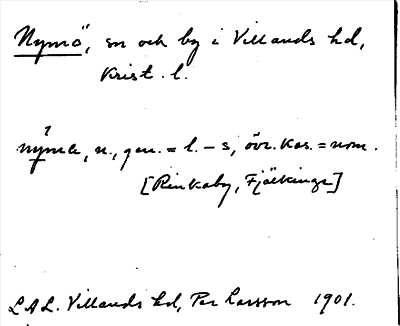 Nymö, sn och by i Villands hd,
Krist. l.
nyma, n., gen. = l. - s, övr. kas. = nom.
[Rinkaby, Fjälkinge]
LAL. Villands hd, Per Larsson 1901.